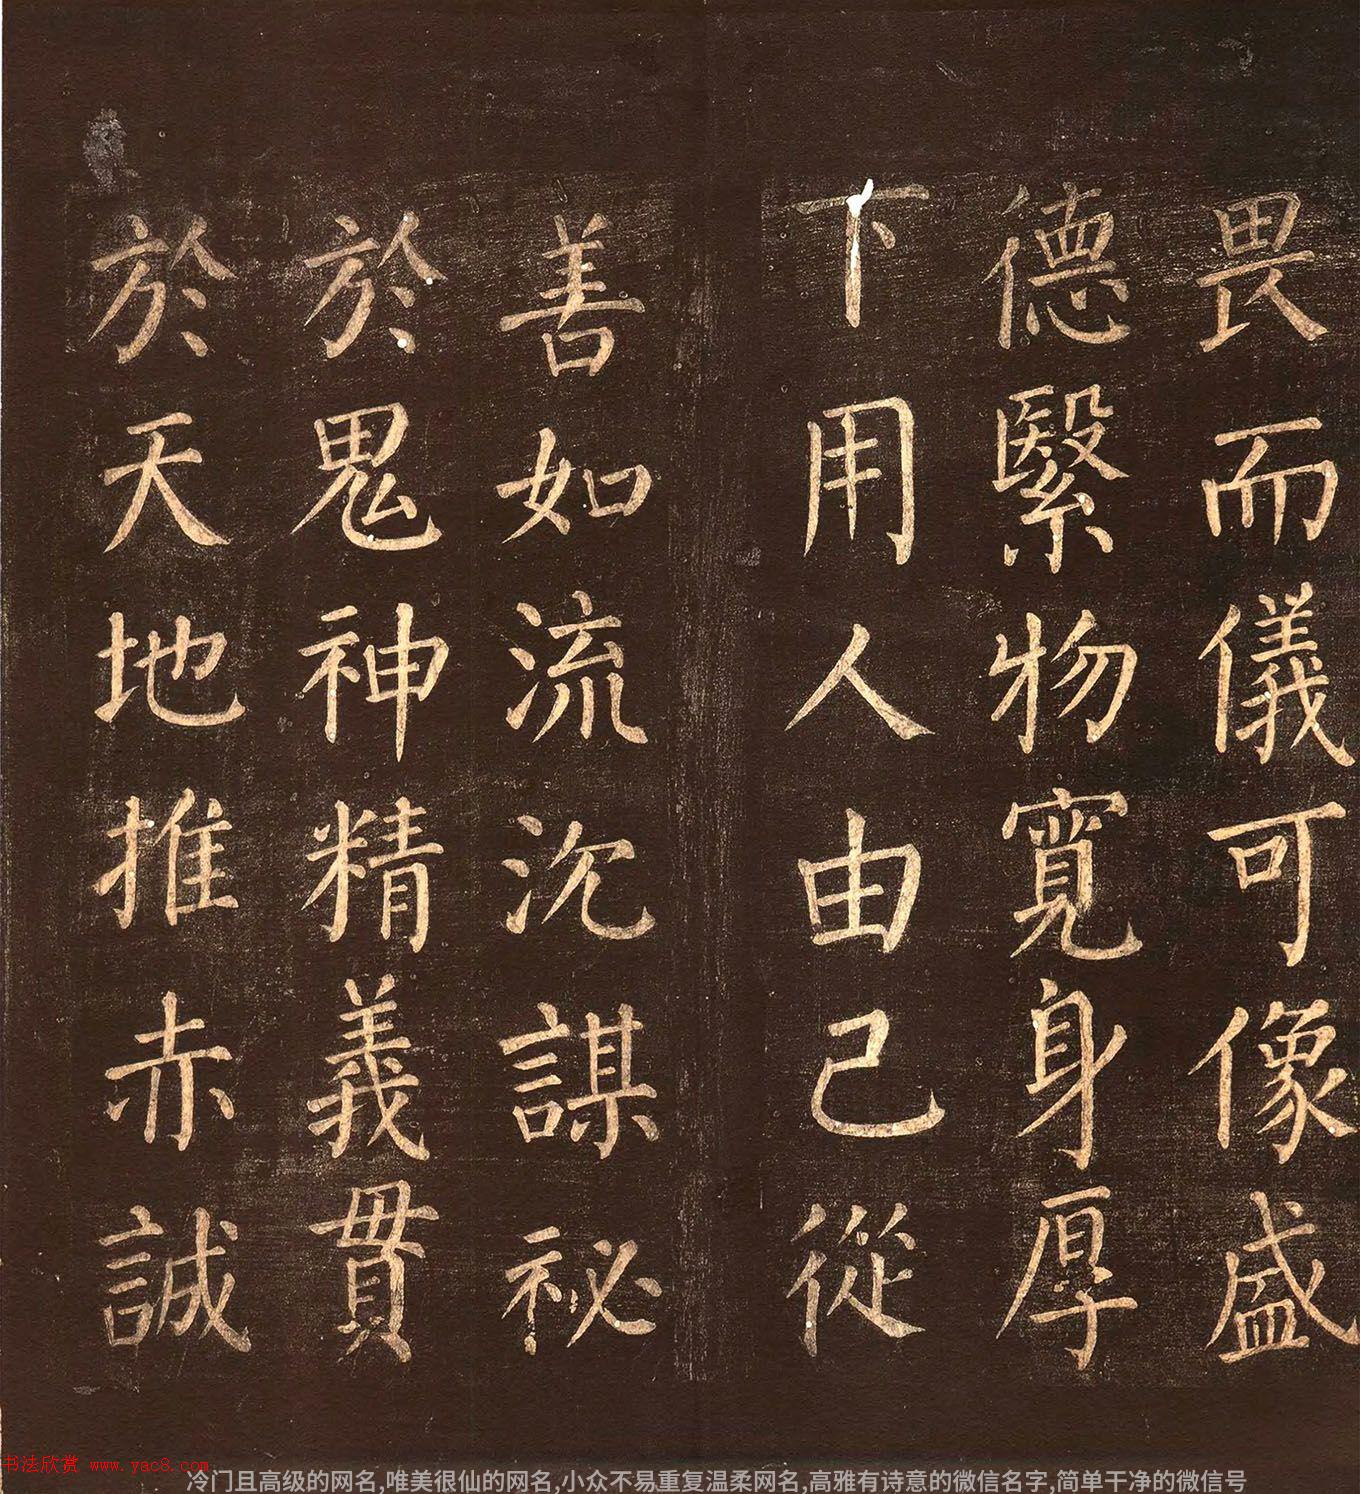 畏而儀可像盛
德繄物寬身厚
下用人由己從
善如流沉謀祕
於鬼神精義貫
於天地推赤誠
书法欣赏 www.yac8.com
冷门且高级的网名,唯美很仙的网名,小众不易重复温柔网名,高雅有诗意的微信名字,简单干净的微信号